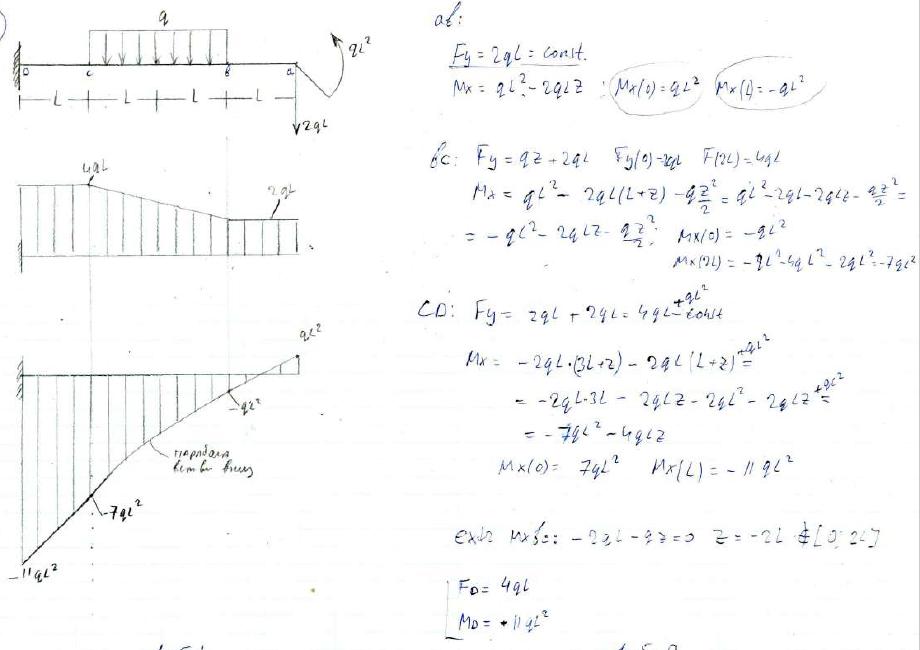 q
qL²
D
c
b
a
L L L L
2qL
4qL
2qL
qL²
-qL²
парабола
ветви вниз
-7qL²
-11qL²
ab:
Fy = 2qL = const.
Mx = qL² - 2qLZ : Mx(0) = qL² Mx(L) = -qL²
bc: Fy = qZ + 2qL Fy(0) = 2qL F(2L) = 4qL
Mx = qL² - 2qL(L+Z) - qZ²/2 = qL² - 2qL - 2qLZ - qZ²/2 =
= -qL² - 2qLZ - qZ²/2; Mx(0) = -qL²
Mx(2L) = -qL² - 4qL² - 2qL² = -7qL²
CD: Fy = 2qL + 2qL = 4qL +qL² = const
Mx = -2qL·(3L+Z) - 2qL(L+Z) +qL² =
= -2qL·3L - 2qLZ - 2qL² - 2qLZ +qL² =
= -7qL² - 4qLZ
Mx(0) = 7qL² Mx(L) = -11qL²
extr Mx bc: -2qL - qZ = 0 Z = -2L ∉ [0; 2L]
FD = 4qL
MD = +11qL²